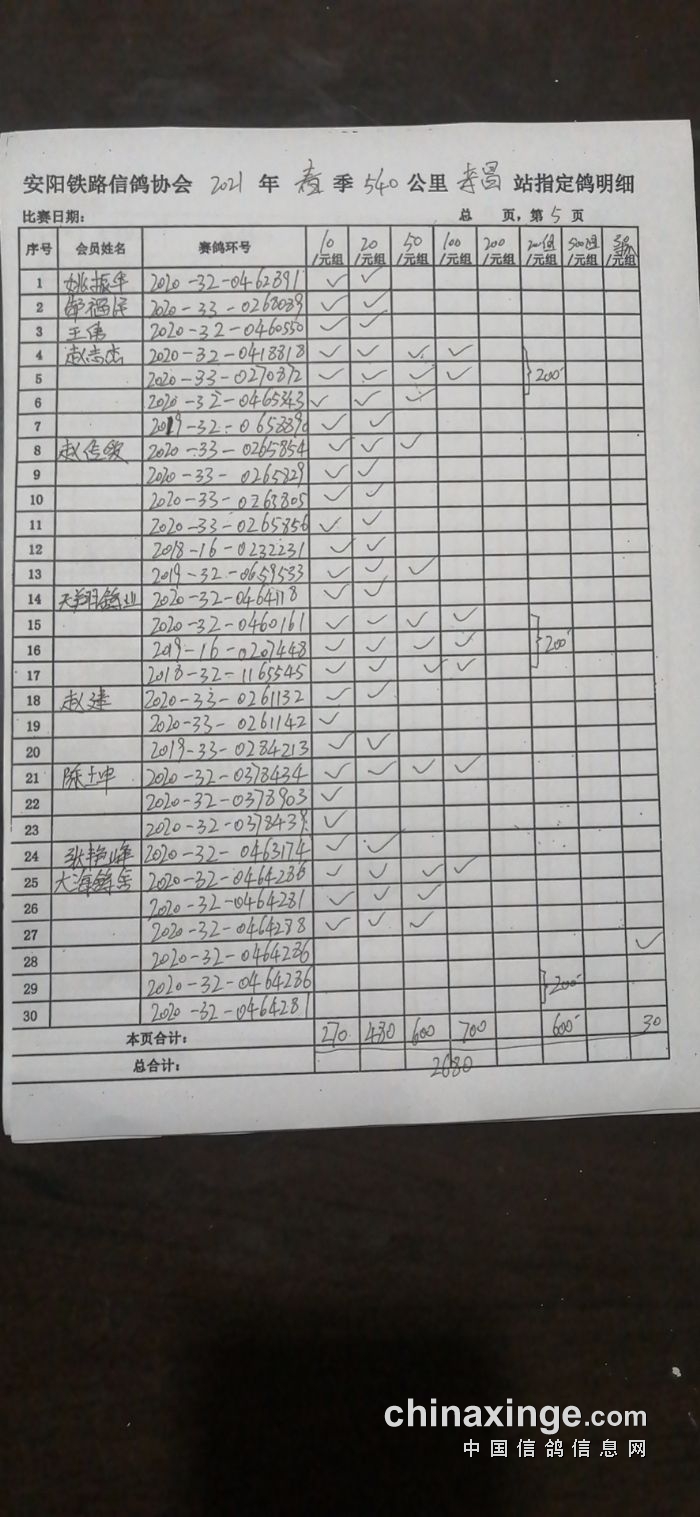 安阳铁路信鸽协会 2021 年 春 季 540 公里 孝昌 站指定鸽明细
比赛日期: 总 页,第 5 页
序号 会员姓名 赛鸽环号 10/元组 20/元组 50/元组 100/元组 200/元组 /元组 /元组 /元组
1 姚振华 2020-32-0462891 ✓ ✓
2 2020-33-0268089 ✓ ✓
3 王伟 2020-32-0460550 ✓ ✓
4 赵志杰 2020-32-0418818 ✓ ✓ ✓ ✓
5 2020-33-0270872 ✓ ✓ ✓ ✓ }200
6 2020-32-0465343 ✓ ✓ ✓
7 2019-32-0658890 ✓ ✓
8 2020-33-0265854 ✓ ✓ ✓
9 2020-33-0265829 ✓ ✓
10 2020-33-0263805 ✓ ✓
11 2020-33-0265856 ✓ ✓
12 2018-16-0232231 ✓ ✓
13 2019-32-0659533 ✓ ✓ ✓
14 天翔鸽业 2020-32-0464118 ✓ ✓
15 2020-32-0460161 ✓ ✓ ✓ ✓
16 2019-16-0207448 ✓ ✓ ✓ ✓ }200
17 2018-32-1165545 ✓ ✓ ✓ ✓
18 赵建 2020-33-0261132 ✓ ✓
19 2020-33-0261142 ✓
20 2019-33-0284213 ✓ ✓
21 陈士中 2020-32-0378434 ✓ ✓ ✓ ✓
22 2020-32-0378903 ✓
23 2020-32-0378439 ✓
24 张艳峰 2020-32-0463174 ✓ ✓
25 大海鸽舍 2020-32-0464236 ✓ ✓ ✓ ✓
26 2020-32-0464281 ✓ ✓ ✓
27 2020-32-0464288 ✓ ✓ ✓
28 2020-32-0464286 ✓
29 2020-32-0464286 }200
30 2020-32-0464281
本页合计: 270 480 600 700 600 30
总合计: 2680
chinaxinge.com
中国信鸽信息网